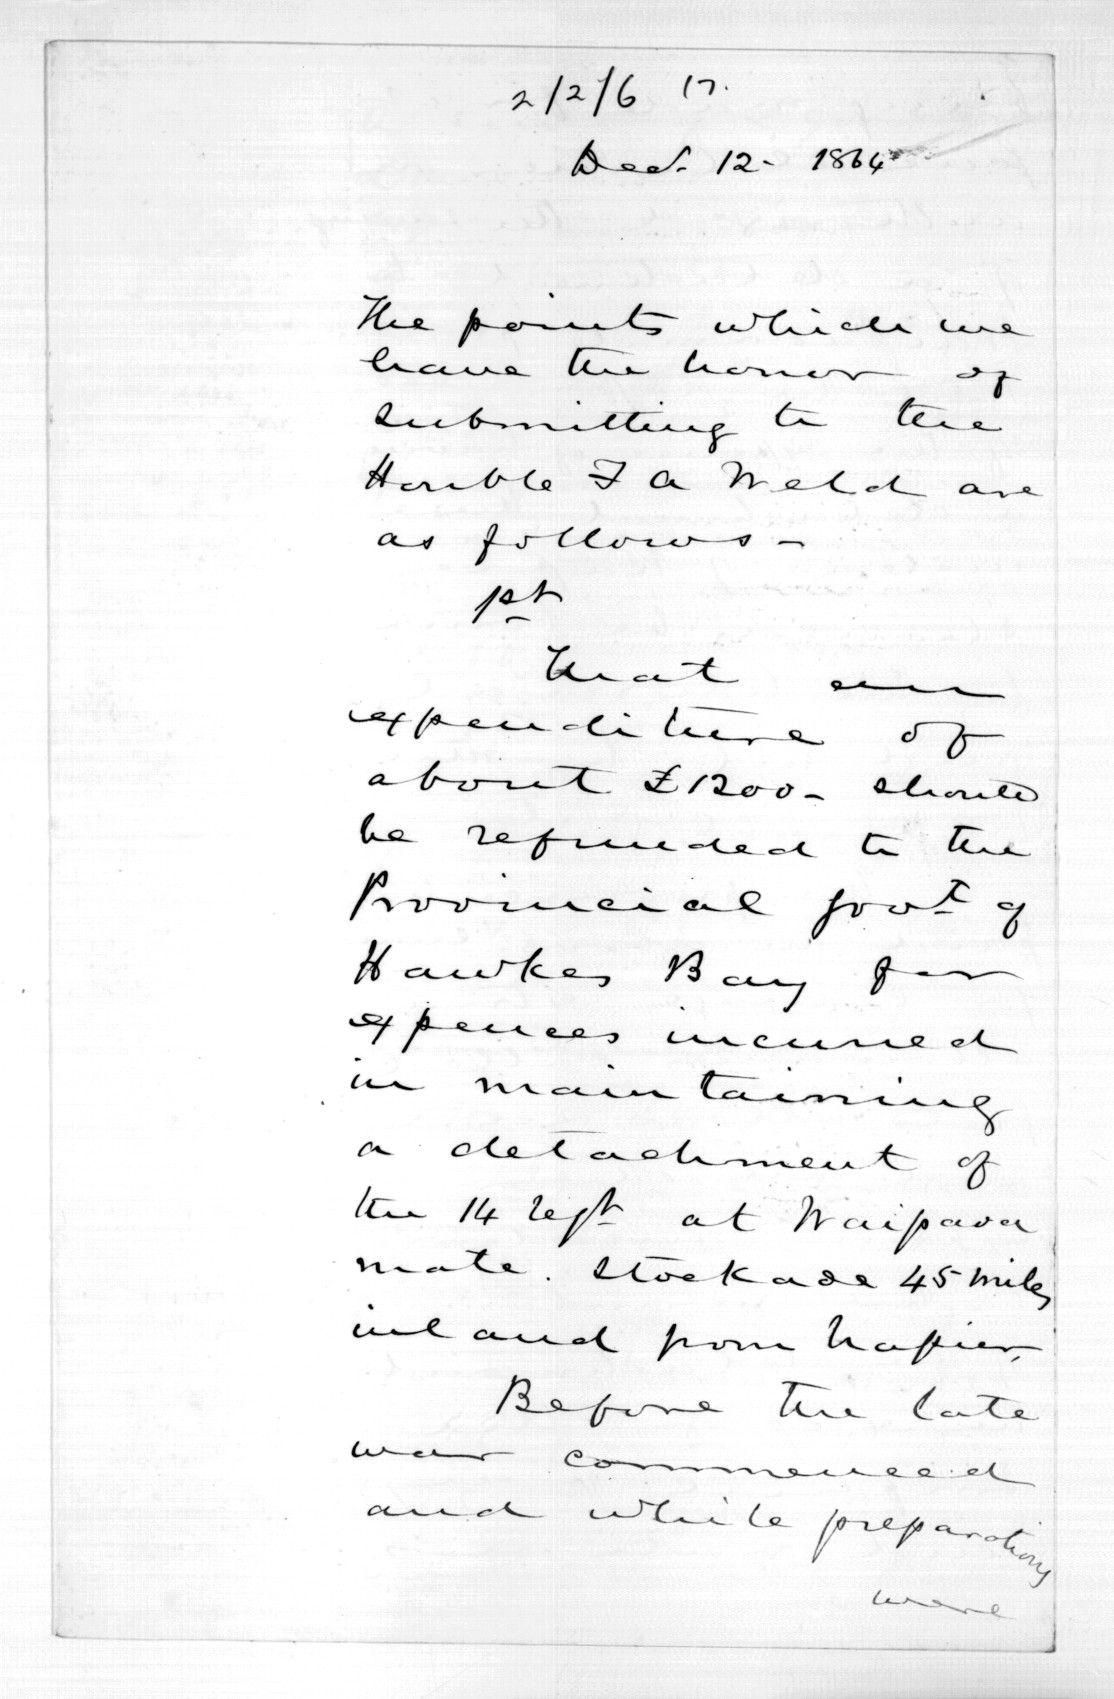 2/2/6 17.
Decr. 12 - 1864
The points which we
have the honor of
submitting to the
Honble F A Weld are
as follows -
1st
That an
expenditure of
about £1200 - should
be refunded to the
Provincial Govt of
Hawkes Bay for
expences incurred
in maintaining
a detachment of
the 14 regt at Waipawa
mate. Stockade 45 miles
inland from Napier.
Before the late
war commenced
and while preparations
were